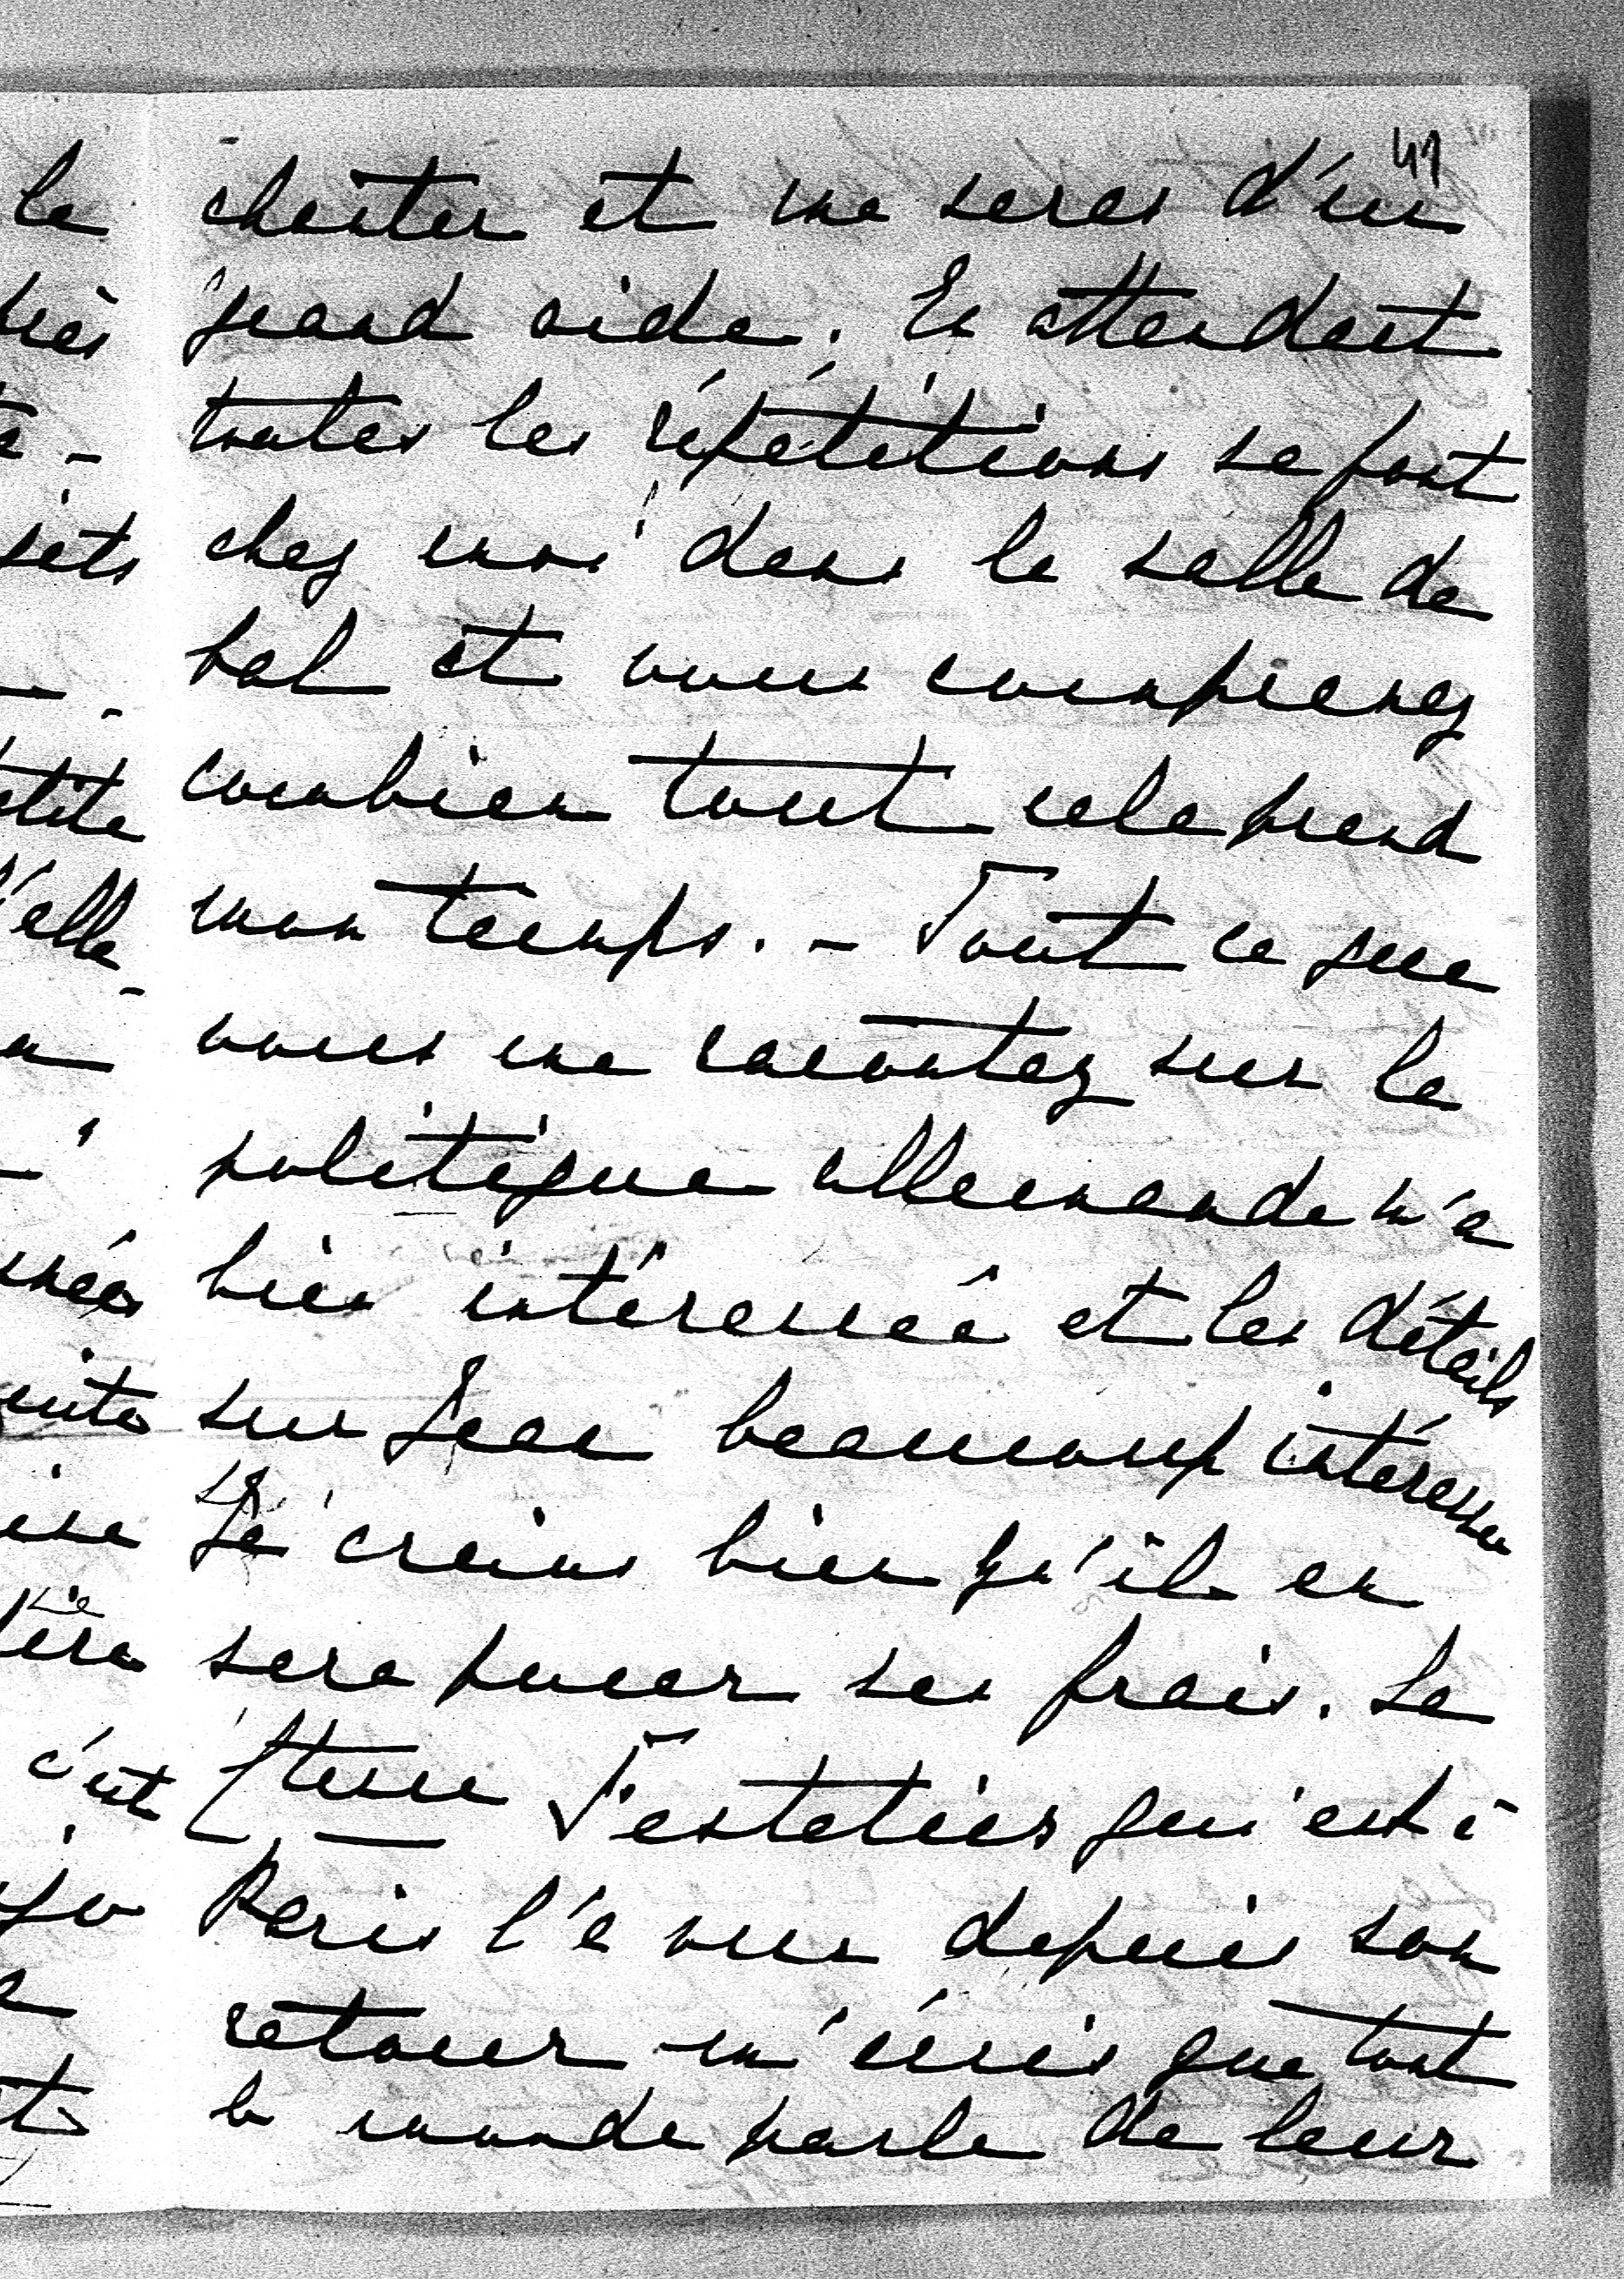 41
chanter et me seras d'un
grand aide. En attendant
toutes les répétitions se font
chez moi dans la salle de
bal et vous comprenez
combien tout cela prend
mon temps. - Tout ce que
vous me racontez sur la
politique allemande m'a
bien intéressé et les détails
sur Jean beaucoup intéresse
Je crains bien qu'il en
sera pour ses frais. Le
qui est à
Paris l'a vu depuis son
retour m'écris que tout
le monde parle de leur
le
c'est